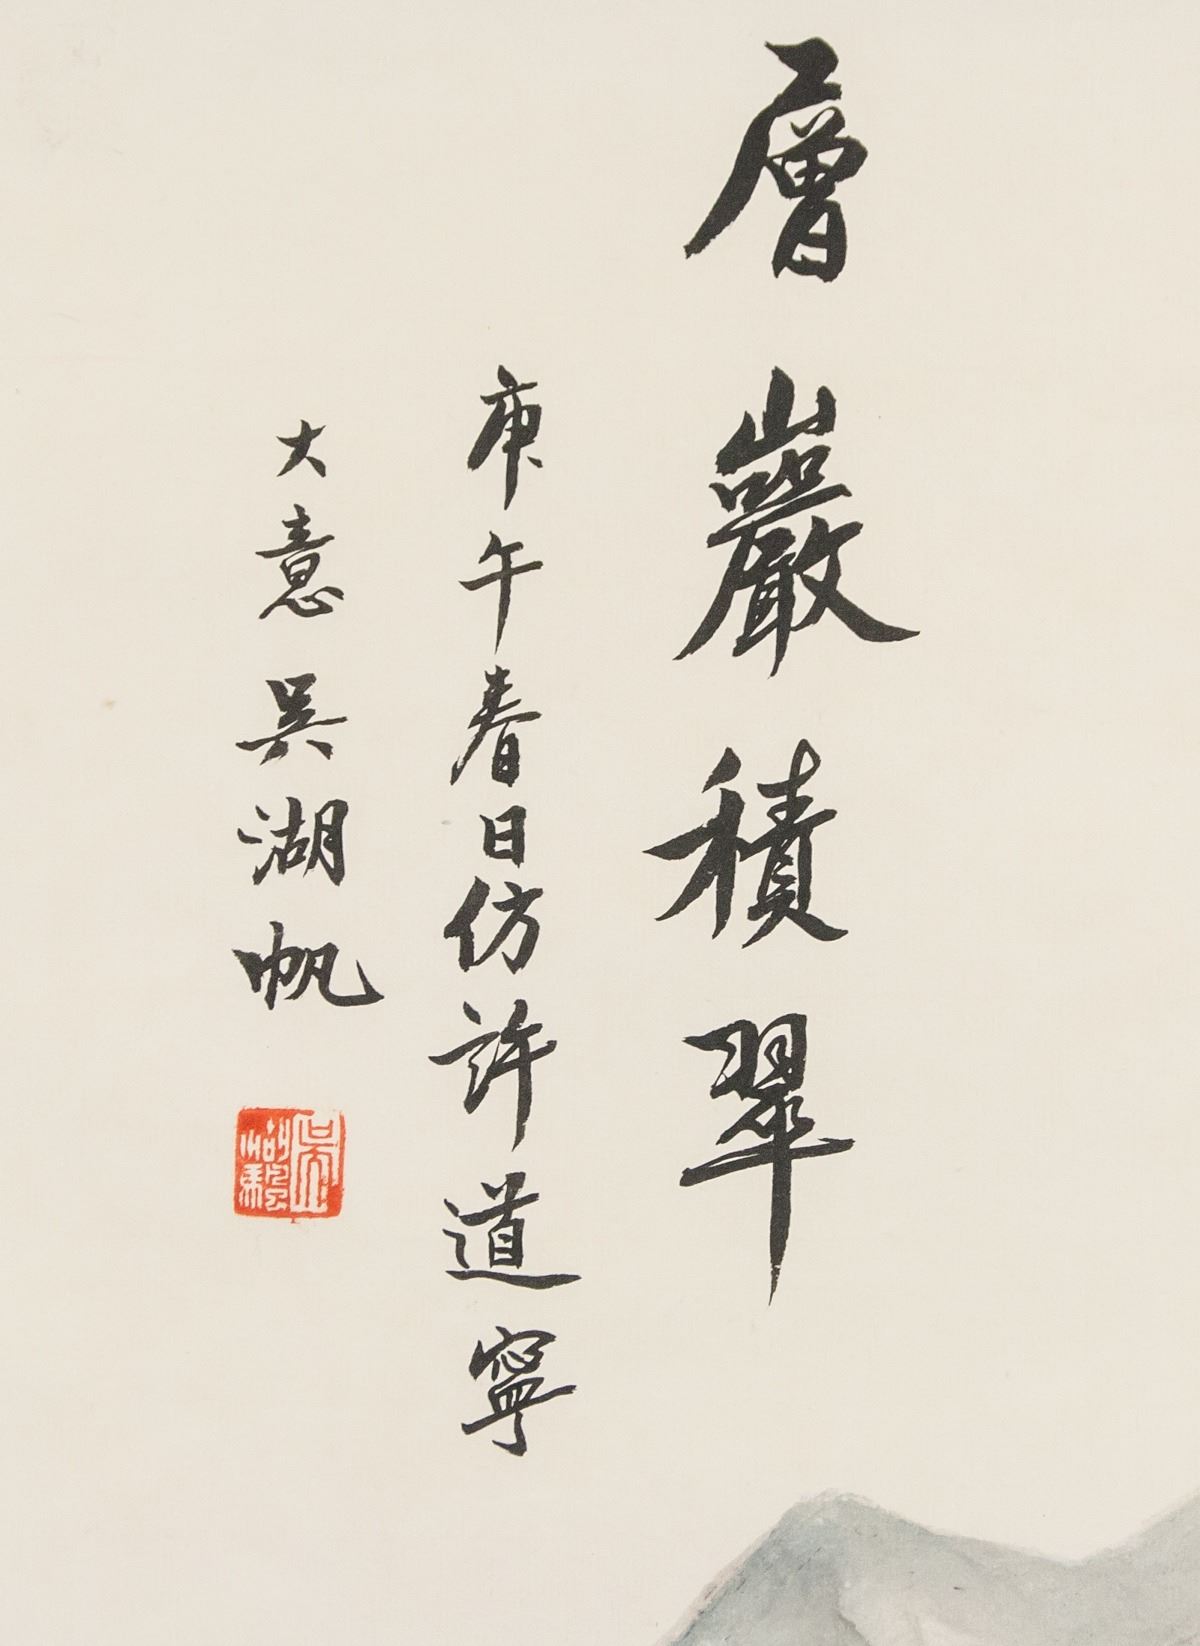 層巖積翠
庚午春日仿許道寧
大意吳湖帆